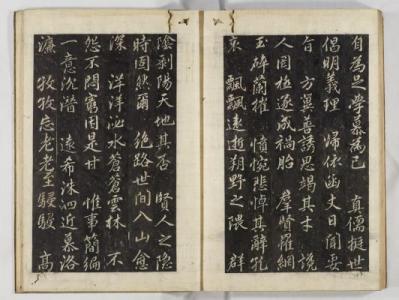 自為之學慕為己 真儒挺世
倡明義理 歸依函丈日聞要
旨 方冀善誘思竭其才 讒
人罔極遂成禍胎 羣賢羅網
玉碎蘭摧 憤惋悲悼其辭孔
哀 飄飄遠逝朔野之隈 群
陰剝陽天地其否 賢人之隱
時固然爾 絕路世間入山愈
深 洋洋泌水蒼蒼雲林 不
怨不悶窮困是甘 惟事簡編
一意沈潛 遠希洙泗近慕洛
濂 孜孜忘老老至駸駸 高